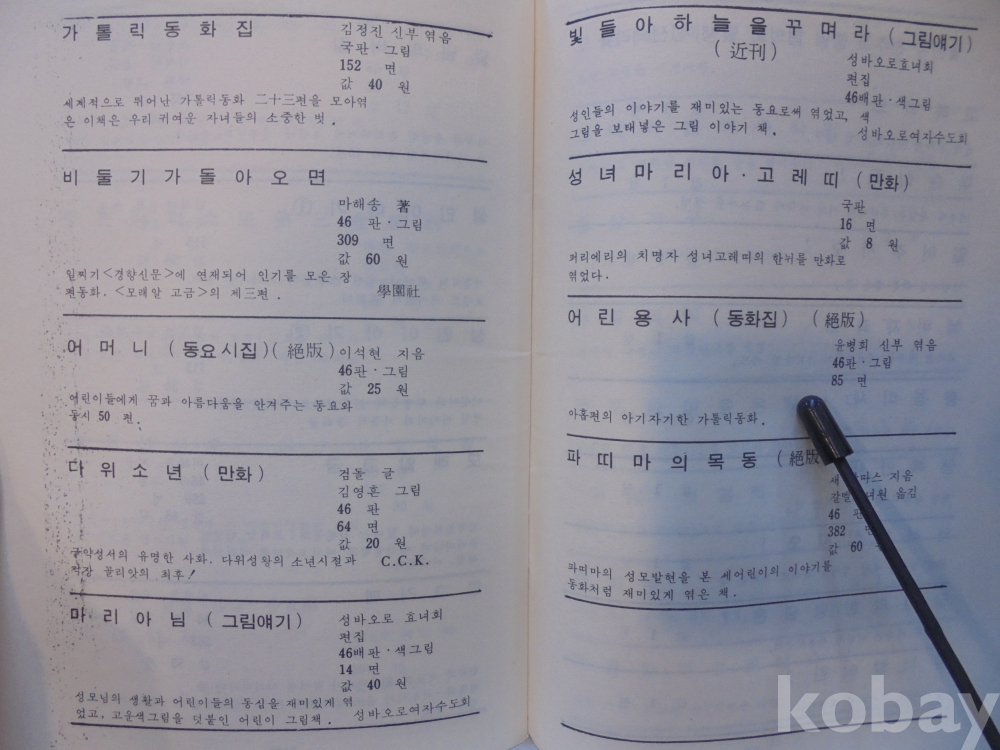 가톨릭동화집
김정진 신부 엮음
국판·그림
152 면
값 40 원
세계적으로 뛰어난 가톨릭동화 二十三편을 모아엮
은 이책은 우리 귀여운 자녀들의 소중한 벗.
비둘기가돌아오면
마해송 著
46 판·그림
309 면
값 60 원
일찌기<경향신문>에 연재되어 인기를 모은 장
편동화. <모래알 고금>의 제三편. 學園社
어머니 (동요시집)(絕版) 이석현 지음
46판·그림
값 25 원
어린이들에게 꿈과 아름다움을 안겨주는 동요와
동시 50 편.
다위소년 (만화) 검돌 글
김영흔 그림
46 판
64 면
값 20 원
구약성서의 유명한 사화. 다위성왕의 소년시절과 C.C.K.
적장 골리앗의 최후!
마리아님 (그림얘기) 성바오로 효녀회
편집
46배판·색그림
14 면
값 40 원
성모님의 생활과 어린이들의 동심을 재미있게 엮
었고, 고운색그림을 덧붙인 어린이 그림책. 성바오로여자수도회
빛들아하늘을꾸며라 (그림얘기)
(近刊)
성바오로효녀회
편집
46배판·색그림
성인들의 이야기를 재미있는 동요로써 엮었고, 색
그림을 보태넣은 그림 이야기 책. 성바오로여자수도회
성녀마리아·고레띠 (만화)
국판
16 면
값 8 원
퍼리에리의 치명자 성녀고레띠의 한뉘를 만화로
엮었다.
어린용사 (동화집) (絕版)
윤병희 신부 엮음
46판·그림
85 면
아홉편의 아기자기한 가톨릭동화.
파띠마의목동 (絕版
지음
옮김
46 판
382
값 60
파띠마의 성모발현을 본 세어린이의 이야기를
동화처럼 재미있게 엮은 책.
kobay